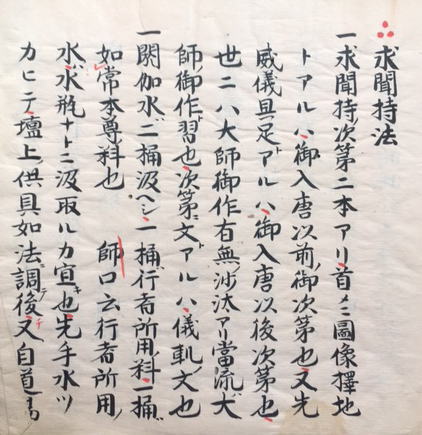 求聞持法
一求聞持ノ次第二本アリ首メニ圖像擇地
トアルハ御入唐以前ノ御次第也又先
威儀具足アルハ御入唐以後次第也
世ニハ大師御作有無ノ沙汰アリ當流ハ大
師ノ御作ト習也次第ノ文トアルハ儀軌ノ文也
一閼伽水ハ二桶汲ヘシ一桶ハ行者所用ノ料一桶ハ
如常本尊ノ料也 師口云行者所用ノ
水ハ水瓶ナトニ汲取ルカ宜キ也先手水ツ
カヒテ壇上ノ供具如法調テ後又自道